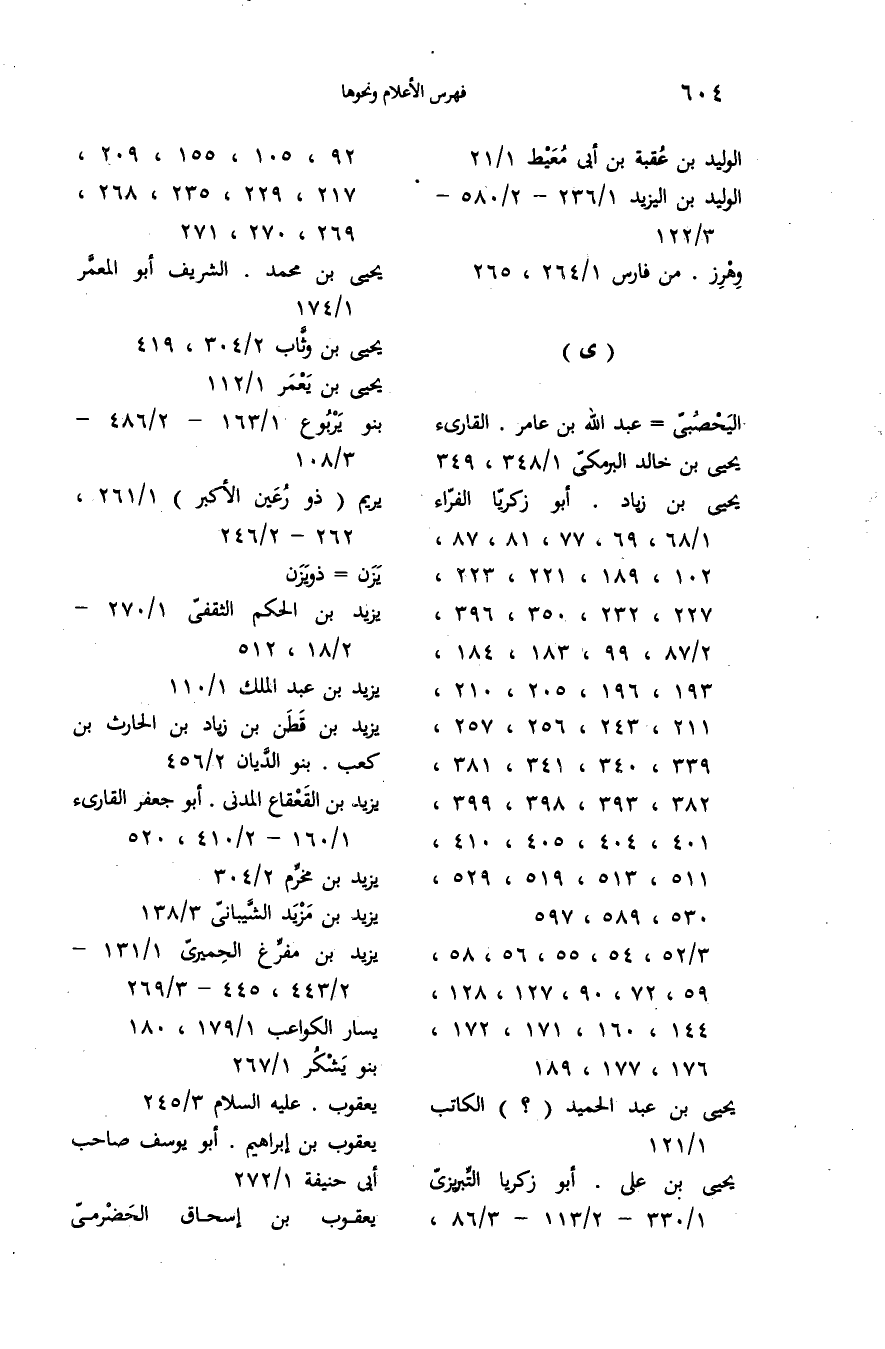 ٦٠٤
فهرس الأعلام ونحوها
الوليد بن عُقبة بن أبى مُعَيْط ٢١/١
الوليد بن اليزيد ٢٣٦/١ – ٥٨٠/٢ –
١٢٢/٣
وِهْرِز . من فارس ٢٦٤/١ ، ٢٦٥
( ى )
اليَحْصُبىّ = عبد الله بن عامر . القارىء
يحيى بن خالد البرمكىّ ٣٤٨/١ ، ٣٤٩
يحيى بن زياد . أبو زكريّا الفرّاء
٦٨/١ ، ٦٩ ، ٧٧ ، ٨١ ، ٨٧ ،
١٠٢ ، ١٨٩ ، ٢٢١ ، ٢٢٣ ،
٢٢٧ ، ٢٣٢ ، ٣٥٠ ، ٣٩٦ ،
٨٧/٢ ، ٩٩ ، ١٨٣ ، ١٨٤ ،
١٩٣ ، ١٩٦ ، ٢٠٥ ، ٢١٠ ،
٢١١ ، ٢٤٣ ، ٢٥٦ ، ٢٥٧ ،
٣٣٩ ، ٣٤٠ ، ٣٤١ ، ٣٨١ ،
٣٨٢ ، ٣٩٣ ، ٣٩٨ ، ٣٩٩ ،
٤٠١ ، ٤٠٤ ، ٤٠٥ ، ٤١٠ ،
٥١١ ، ٥١٣ ، ٥١٩ ، ٥٢٩ ،
٥٣٠ ، ٥٨٩ ، ٥٩٧
٥٢/٣ ، ٥٤ ، ٥٥ ، ٥٦ ، ٥٨ ،
٥٩ ، ٧٢ ، ٩٠ ، ١٢٧ ، ١٢٨ ،
١٤٤ ، ١٦٠ ، ١٧١ ، ١٧٢ ،
١٧٦ ، ١٧٧ ، ١٨٩
يحيى بن عبد الحميد ( ؟ ) الكاتب
١٢١/١
يحيى بن على . أبو زكريا التِّبريزىّ
٣٣٠/١ – ١١٣/٢ – ٨٦/٣ ،
٩٢ ، ١٠٥ ، ١٥٥ ، ٢٠٩ ،
٢١٧ ، ٢٢٩ ، ٢٣٥ ، ٢٦٨ ،
٢٦٩ ، ٢٧٠ ، ٢٧١
يحيى بن محمد . الشريف أبو المعمَّر
١٧٤/١
يحيى بن وثَّاب ٣٠٤/٢ ، ٤١٩
يحيى بن يَعْمَر ١١٢/١
بنو يَرْبُوع ١٦٣/١ – ٤٨٦/٢ –
١٠٨/٣
يريم ( ذو رُعَين الأكبر ) ٢٦١/١ ،
٢٦٢ – ٢٤٦/٢
يَزَن = ذويَزَن
يزيد بن الحكم الثقفىّ ٢٧٠/١ –
١٨/٢ ، ٥١٢
يزيد بن عبد الملك ١١٠/١
يزيد بن قَطَن بن زياد بن الحارث بن
كعب . بنو الدَّيان ٤٥٦/٢
يزيد بن القَعْقاع المدنى . أبو جعفر القارىء
١٦٠/١ – ٤١٠/٢ ، ٥٢٠
يزيد بن مخرِّم ٣٠٤/٢
يزيد بن مَزْيَد الشَّيبانىّ ١٣٨/٣
يزيد بن مفرِّغ الحِميرىّ ١٣١/١ –
٤٤٣/٢ ، ٤٤٥ – ٢٦٩/٣
يسار الكواعب ١٧٩/١ ، ١٨٠
بنو يَشْكُر ٢٦٧/١
يعقوب . عليه السلام ٢٤٥/٣
يعقوب بن إبراهيم . أبو يوسف صاحب
أبى حنيفة ٢٧٢/١
يعقوب بن إسحاق الحَضْرمىّ